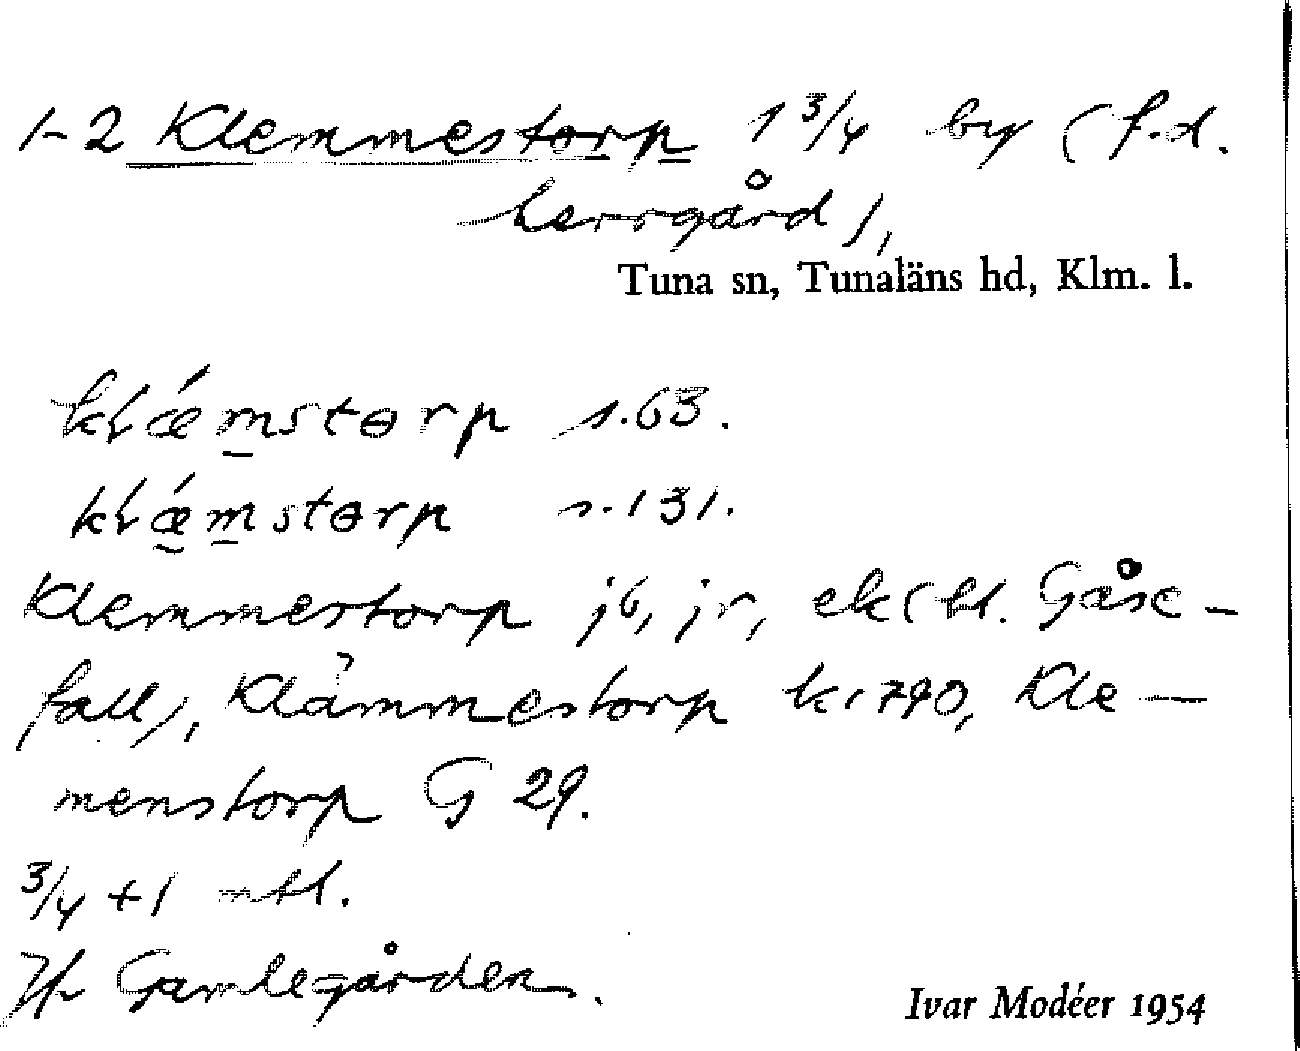 1-2 Klemmestorp 1 3/4 by (f.d.
herrgård),
Tuna sn, Tunaläns hd, Klm. l.
klǽmstɵrp s.63.
klǽmstɵrp s.131.
Klemmestorp jb, jr, ek (bl. Gåse-
fall), Klämmestorp k 1790, Kle-
menstorp G 29.
3/4 + 1 mtl.
Jfr Gamlegården.
Ivar Modéer 1954